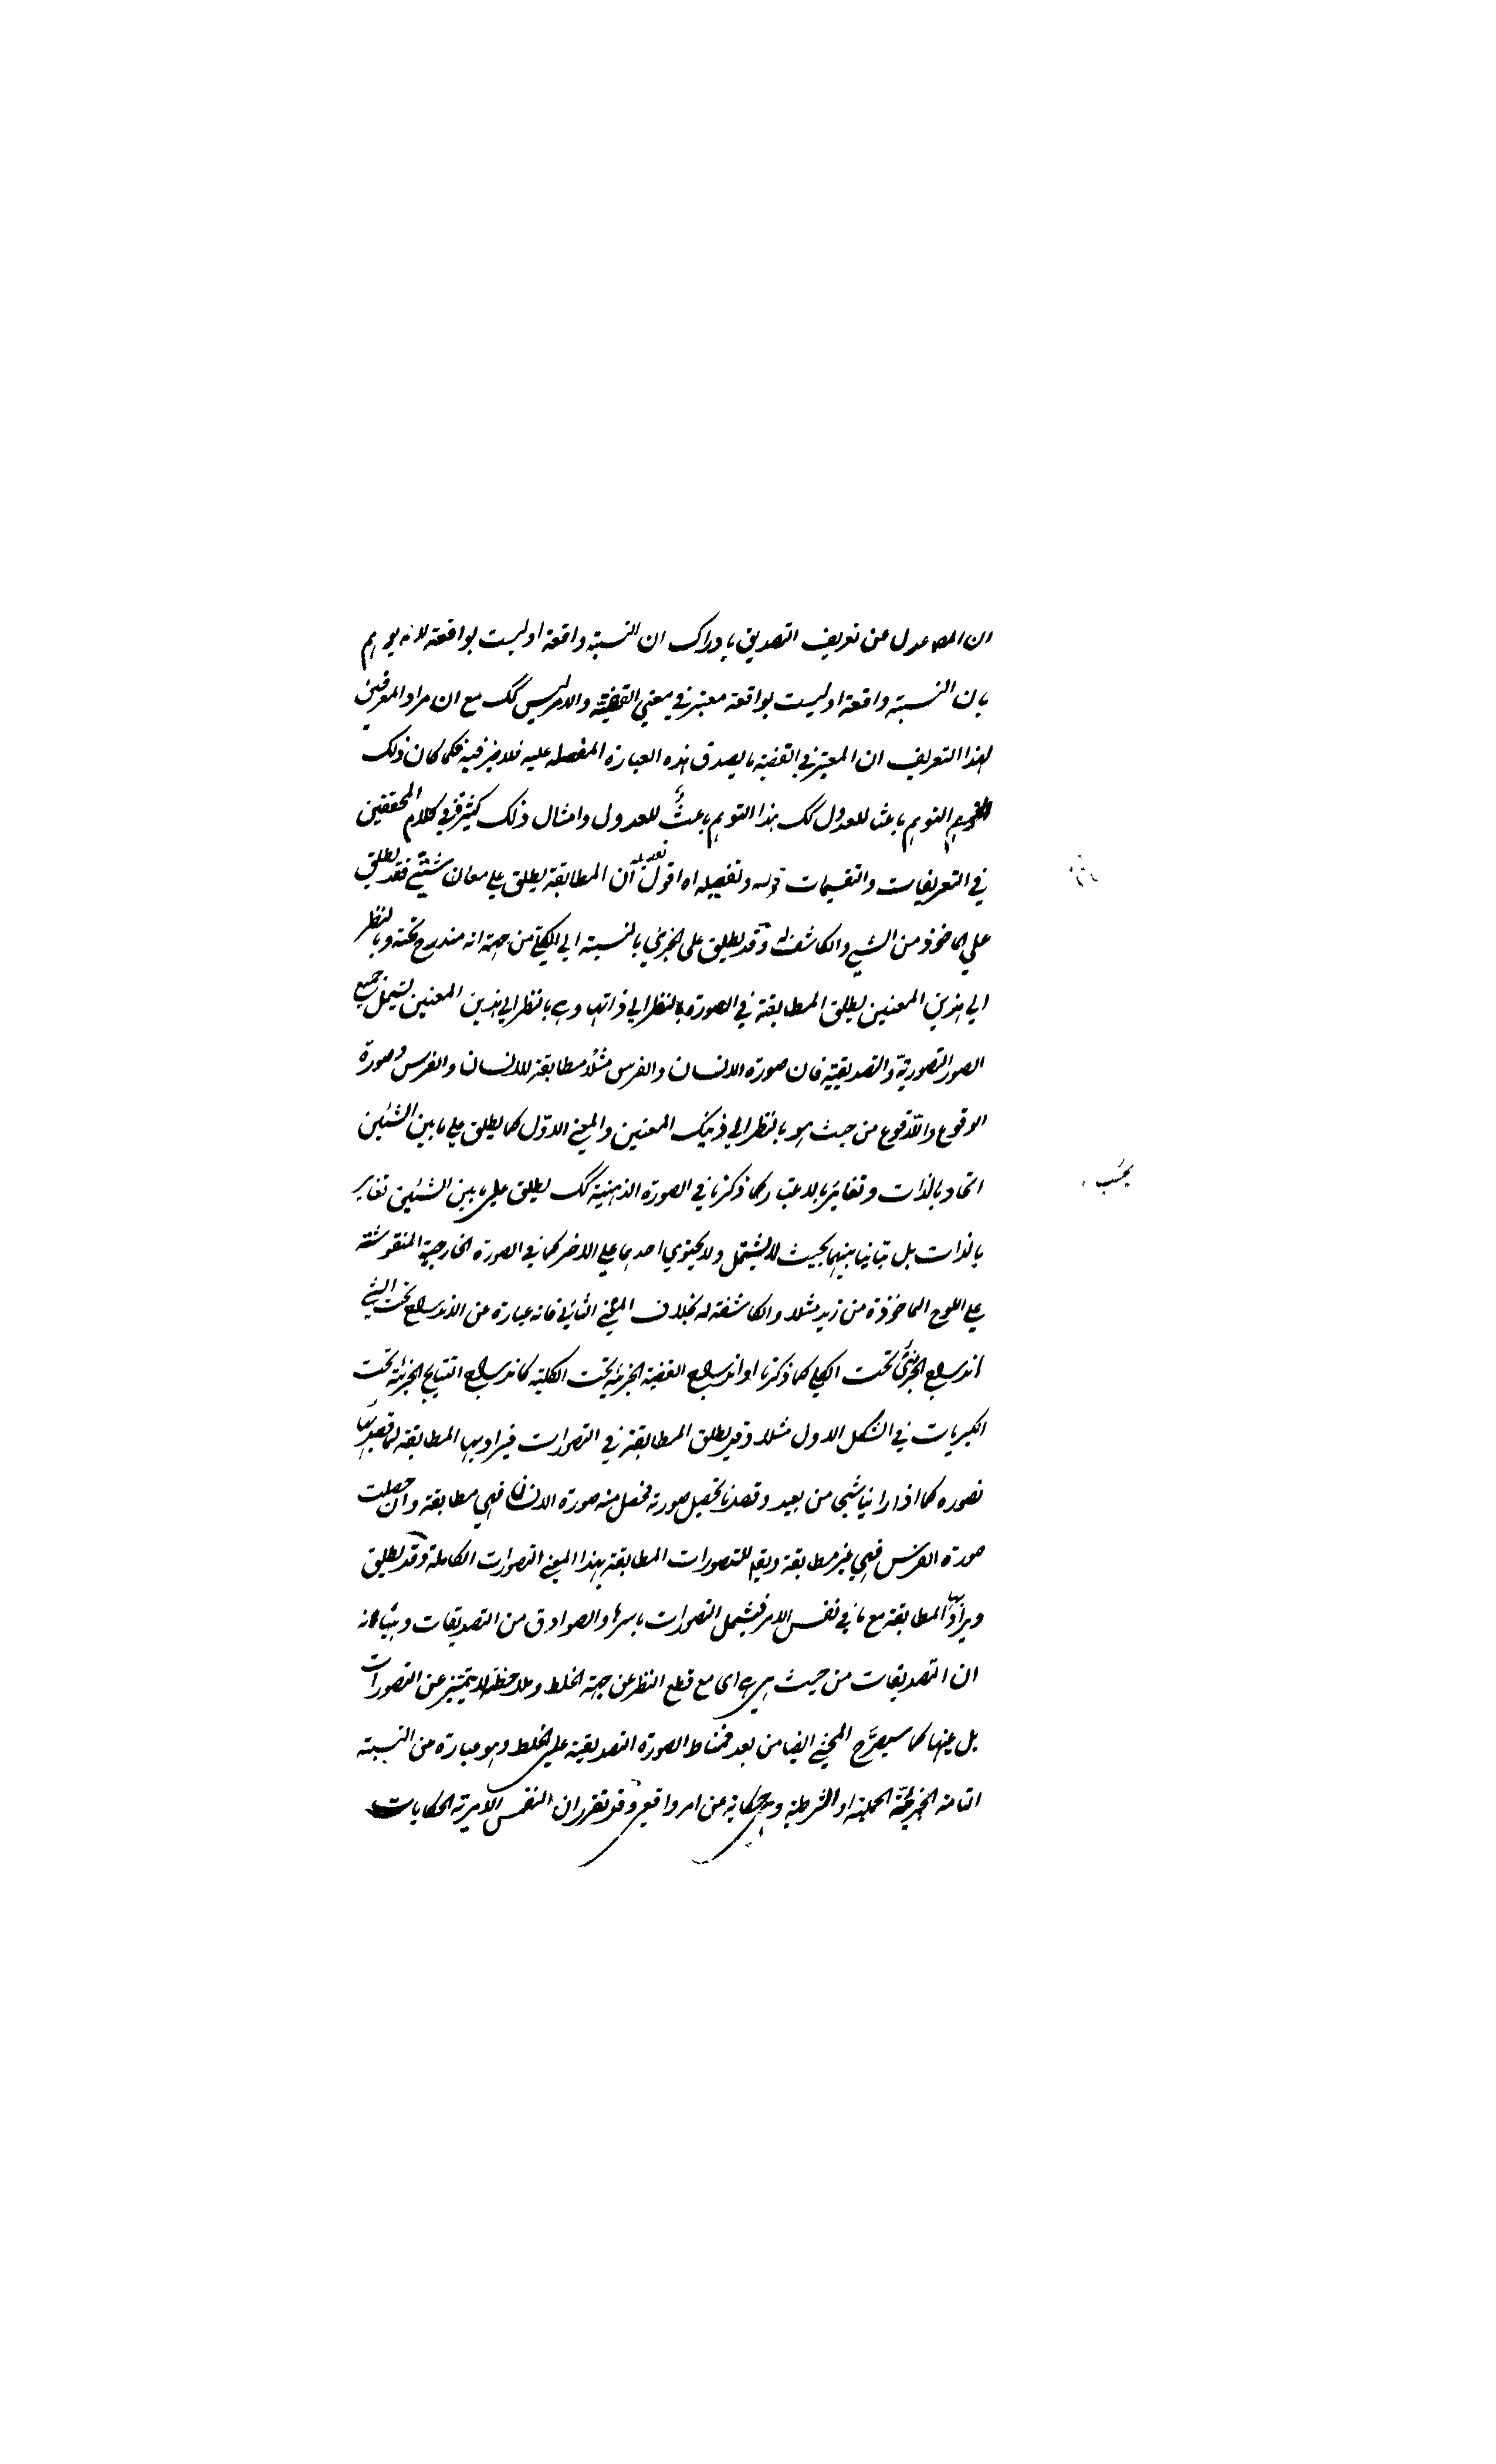 ان المصـ عدل عن تعريف التصديق بادراك ان النسبة واقعة او ليست بواقعة لانه يوهم
بان النسبة واقعة او ليست بواقعة معتبرة في معني القضية والامر ليس كك مع ان مراد المعرفين
بهذا التعريف ان المعتبر في القضية ما يصدق هذه العبارة المفصلة عليه فلا ضير فيه فكما كان ذلك
التوهم باعثا للعدول كك هذا التوهم باعثٌ للعدول وامثال ذلك كثيرة في كلام المحققين
في التعريفات والتقسيمات قوله وتفصيله اه اقول ان المطابقة يطلق علي معان شتي فقد يطلق
علي الماخوذ من الشي والكاشف له وقد يطلق على الجزئي بالنسبة الي الكلي من جهة انه مندرج تحته وبالنظر
الي هذين المعنين يطلق المطابقة في الصورة بالنظر الي ذاتها وهي بالنظر الي هذين المعنين يشمل جميع
الصور التصورية والتصديقية فان صورة الانسان والفرس مثلا مطابقة للانسان والفرس وصورة
الوقوع واللاوقوع من حيث هو بالنظر الي ذينك المعنين والمعني الاول كما يطلق علي ما بين الشئين
اتحاد بالذات وتغاير بالاعتبار كما ذكرنا في الصورة الذهنية كك يطلق علي ما بين الشئين تغاير
بالذات بل تباينا بينهما بحيث لا يشتمل ولا يحتوي احدهما علي الاخر كما في الصورة الخارجية المنقوشة
علي اللوح الماخوذة من زيد مثلا والكاشفة له بخلاف المعني الثاني فانه عبارة عن اندراج تحت الشي
اندراج الجزئي تحت الكلي كما ذكرنا او اندراج القضية الجزئية تحت الكلية كاندراج النتايج الجزئية تحت
الكبريات في الشكل الاول مثلا وقد يطلق المطابقة في التصورات فيراد بها المطابقة لما قصد بها
تصوره كما اذا راينا شيئا من بعيد وقصدنا تحصيل صورته فحصل منه صورة الانسان فهي مطابقة وان حصلت
صورة الفرس فهي غير مطابقة ويقـ للتصورات المطابقة بهذا المعني التصورات الكاملة وقد يطلق
ويراد بها المطابقة مع ما في نفس الامر فيشمل التصورات باسرها والصوادق من التصديقات وبيانه
ان التصديقات من حيث هي هي اى مع قطع النظر عن جهة الخلط وملاحظته لا يتميز عن التصورات
بل عينها كما سيصرّح المحشي ايضا من بعد فمناط الصورة التصديقية علي الخلط وهو عبارة عن النسبة
التامة الخبرية الحملية او الشرطية وهي حكاية عن امر واقعي وقد تقرر ان النفس الامرية الحكايات
بحسب